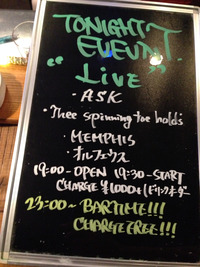 TONIGHT
EVENT.
"LIVE"
・ASK
・Thee spinning toe holds
・MEMPHIS
・オルフェウス
19:00-OPEN 19:30-START
CHARGE ¥1000+(ドリンクオーダー
23:00~BARTIME!!!
CHARGE FREE!!!